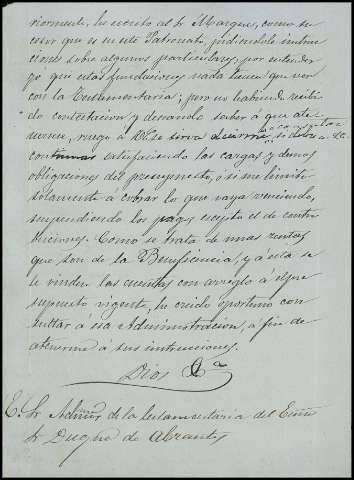 riormente, he escrito al Sr Marques, como su
cesor que es en este Patronato, pidiendole instruc
ciones sobre algunos particulares, por entender
yo que estas fundaciones nada tienen que ver
con la Testamentaria; pero no habiendo recibi
do contestacion y deseando saber á que ate
nerme, ruego á V.E. se sirva decirme, si debo
continuar satisfaciendo las cargas y demas
obligaciones del presupuesto, ó si me limito
solamente á cobrar lo que vaya venciendo,
suspendiendo los pagos escepto el de contri
buciones. Como se trata de unas rentas
que son de la Beneficencia, y á esta se
le rinden las cuentas con arreglo á el pre
supuesto vigente, he creido oportuno con
sultar á esa Administracion, á fin de
atenerme á sus instrucciones.
Dios &a
E. Sr Admor de la testamentaria del Exmo
Sr Duque de Abrantes